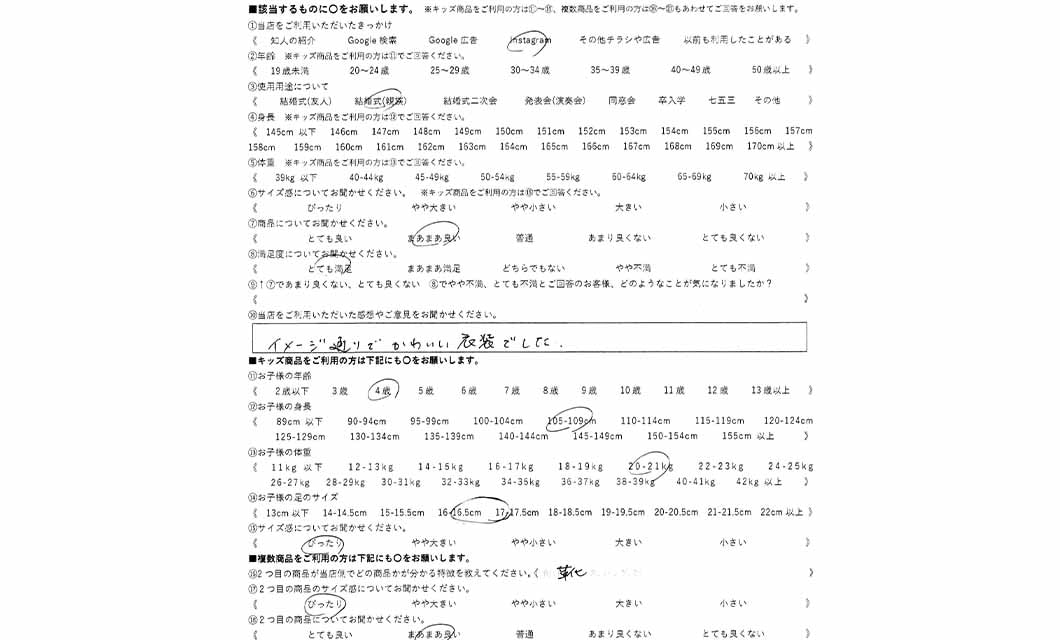 ■該当するものに〇をお願いします。 ※キッズ商品をご利用の方は⑪～⑮、複数商品をご利用の方は⑯～㉑もあわせてご回答をお願いします。
①当店をご利用いただいたきっかけ
《 知人の紹介 Google 検索 Google 広告 Instagram その他チラシや広告 以前も利用したことがある 》
②年齢 ※キッズ商品をご利用の方は⑪でご回答ください。
《 19歳未満 20～24歳 25～29歳 30～34歳 35～39歳 40～49歳 50歳以上 》
③使用用途について
《 結婚式(友人) 結婚式(親族) 結婚式二次会 発表会(演奏会) 同窓会 卒入学 七五三 その他 》
④身長 ※キッズ商品をご利用の方は⑫でご回答ください。
《 145cm 以下 146cm 147cm 148cm 149cm 150cm 151cm 152cm 153cm 154cm 155cm 156cm 157cm
158cm 159cm 160cm 161cm 162cm 163cm 164cm 165cm 166cm 167cm 168cm 169cm 170cm以上 》
⑤体重 ※キッズ商品をご利用の方は⑬でご回答ください。
《 39kg 以下 40-44kg 45-49kg 50-54kg 55-59kg 60-64kg 65-69kg 70kg 以上 》
⑥サイズ感についてお聞かせください。 ※キッズ商品をご利用の方は⑮でご回答ください。
《 ぴったり やや大きい やや小さい 大きい 小さい 》
⑦商品についてお聞かせください。
《 とても良い まあまあ良い 普通 あまり良くない とても良くない 》
⑧満足度についてお聞かせください。
《 とても満足 まあまあ満足 どちらでもない やや不満 とても不満 》
⑨↑⑦であまり良くない、とても良くない ⑧でやや不満、とても不満とご回答のお客様、どのようなことが気になりましたか？
《 》
⑩当店をご利用いただいた感想やご意見をお聞かせください。
イメージ通りでかわいい衣装でした.
■キッズ商品をご利用の方は下記にも〇をお願いします。
⑪お子様の年齢
《 2歳以下 3歳 4歳 5歳 6歳 7歳 8歳 9歳 10歳 11歳 12歳 13歳以上 》
⑫お子様の身長
《 89cm 以下 90-94cm 95-99cm 100-104cm 105-109cm 110-114cm 115-119cm 120-124cm
125-129cm 130-134cm 135-139cm 140-144cm 145-149cm 150-154cm 155cm 以上 》
⑬お子様の体重
《 11kg 以下 12-13kg 14-15kg 16-17kg 18-19kg 20-21kg 22-23kg 24-25kg
26-27kg 28-29kg 30-31kg 32-33kg 34-35kg 36-37kg 38-39kg 40-41kg 42kg 以上 》
⑭お子様の足のサイズ
《 13cm以下 14-14.5cm 15-15.5cm 16-16.5cm 17-17.5cm 18-18.5cm 19-19.5cm 20-20.5cm 21-21.5cm 22cm 以上 》
⑮サイズ感についてお聞かせください。
《 ぴったり やや大きい やや小さい 大きい 小さい 》
■複数商品をご利用の方は下記にも〇をお願いします。
⑯2つ目の商品が当店側でどの商品かが分かる特徴を教えてください。《 革化 》
⑰2つ目の商品のサイズ感についてお聞かせください。
《 ぴったり やや大きい やや小さい 大きい 小さい 》
⑱2つ目の商品についてお聞かせください。
《 とても良い まあまあ良い 普通 あまり良くない とても良くない 》